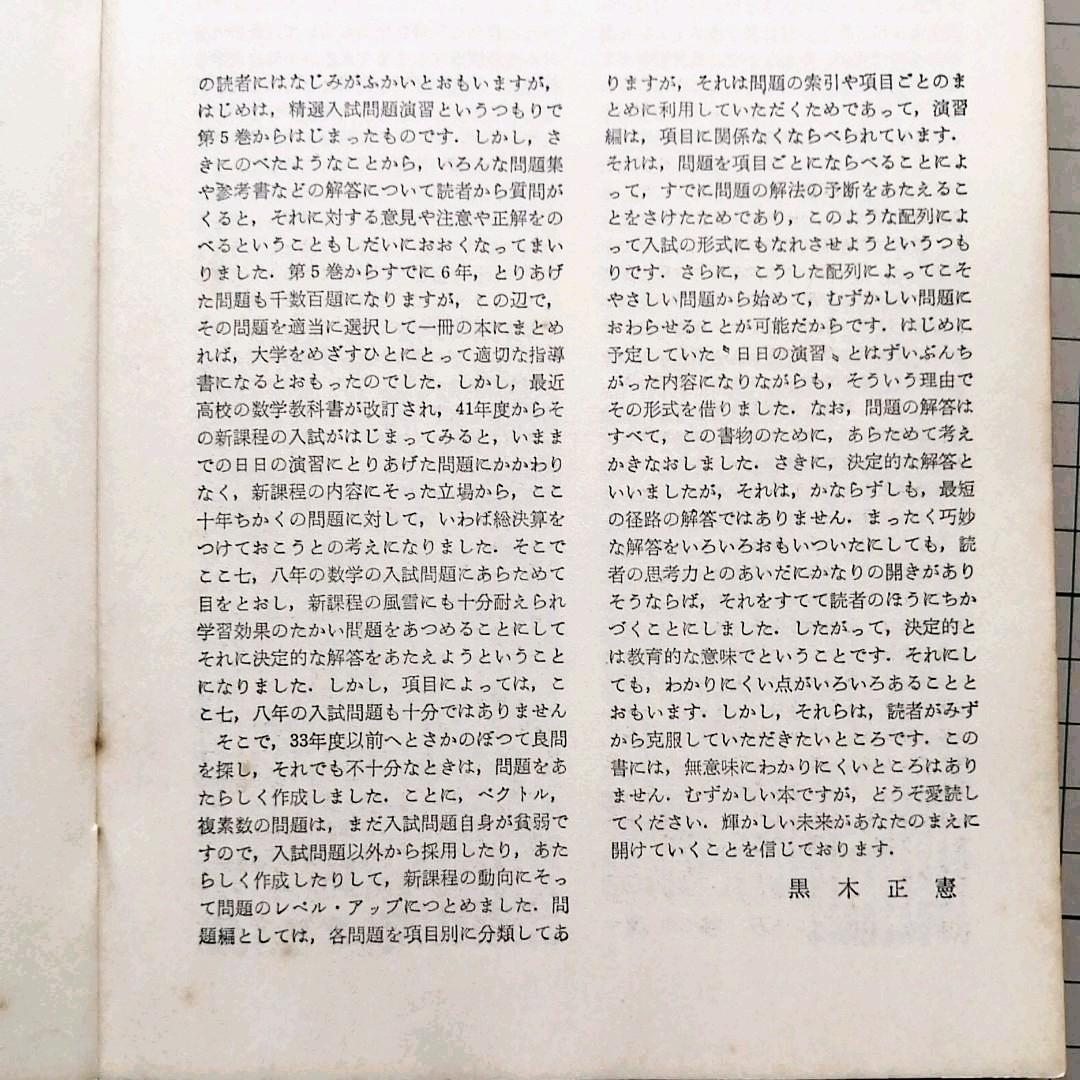 の読者にはなじみがふかいとおもいますが，
はじめは，精選入試問題演習というつもりで
第5巻からはじまったものです．しかし，さ
きにのべたようなことから，いろんな問題集
や参考書などの解答について読者から質問が
くると，それに対する意見や注意や正解をの
べるということもしだいにおおくなってまい
りました．第5巻からすでに6年，とりあげ
た問題も千数百題になりますが，この辺で，
その問題を適当に選択して一冊の本にまとめ
れば，大学をめざすひとにとって適切な指導
書になるとおもったのでした．しかし，最近
高校の数学教科書が改訂され，41年度からそ
の新課程の入試がはじまってみると，いまま
での日日の演習にとりあげた問題にかかわり
なく，新課程の内容にそった立場から，ここ
十年ちかくの問題に対して，いわば総決算を
つけておこうとの考えになりました．そこで
ここ七，八年の数学の入試問題にあらためて
目をとおし，新課程の風雲にも十分耐えられ
学習効果のたかい問題をあつめることにして
それに決定的な解答をあたえようということ
になりました．しかし，項目によっては，こ
こ七，八年の入試問題も十分ではありません
そこで，33年度以前へとさかのぼつて良問
を探し，それでも不十分なときは，問題をあ
たらしく作成しました．ことに，ベクトル，
複素数の問題は，まだ入試問題自身が貧弱で
すので，入試問題以外から採用したり，あた
らしく作成したりして，新課程の動向にそっ
て問題のレベル・アップにつとめました．問
題編としては，各問題を項目別に分類してあ
りますが，それは問題の索引や項目ごとのま
とめに利用していただくためであって，演習
編は，項目に関係なくならべられています．
それは，問題を項目ごとにならべることによ
って，すでに問題の解法の予断をあたえるこ
とをさけたためであり，このような配列によ
って入試の形式にもなれさせようというつも
りです．さらに，こうした配列によってこそ
やさしい問題から始めて，むずかしい問題に
おわらせることが可能だからです．はじめに
予定していた〝日日の演習〟とはずいぶんち
がった内容になりながらも，そういう理由で
その形式を借りました．なお，問題の解答は
すべて，この書物のために，あらためて考え
かきなおしました．さきに，決定的な解答と
いいましたが，それは，かならずしも，最短
の径路の解答ではありません．まったく巧妙
な解答をいろいろおもいついたにしても，読
者の思考力とのあいだにかなりの開きがあり
そうならば，それをすてて読者のほうにちか
づくことにしました．したがって，決定的と
は教育的な意味でということです．それにし
ても，わかりにくい点がいろいろあることと
おもいます．しかし，それらは，読者がみず
から克服していただきたいところです．この
書には，無意味にわかりにくいところはあり
ません．むずかしい本ですが，どうぞ愛読し
てください．輝かしい未来があなたのまえに
開けていくことを信じております．
黒木正憲